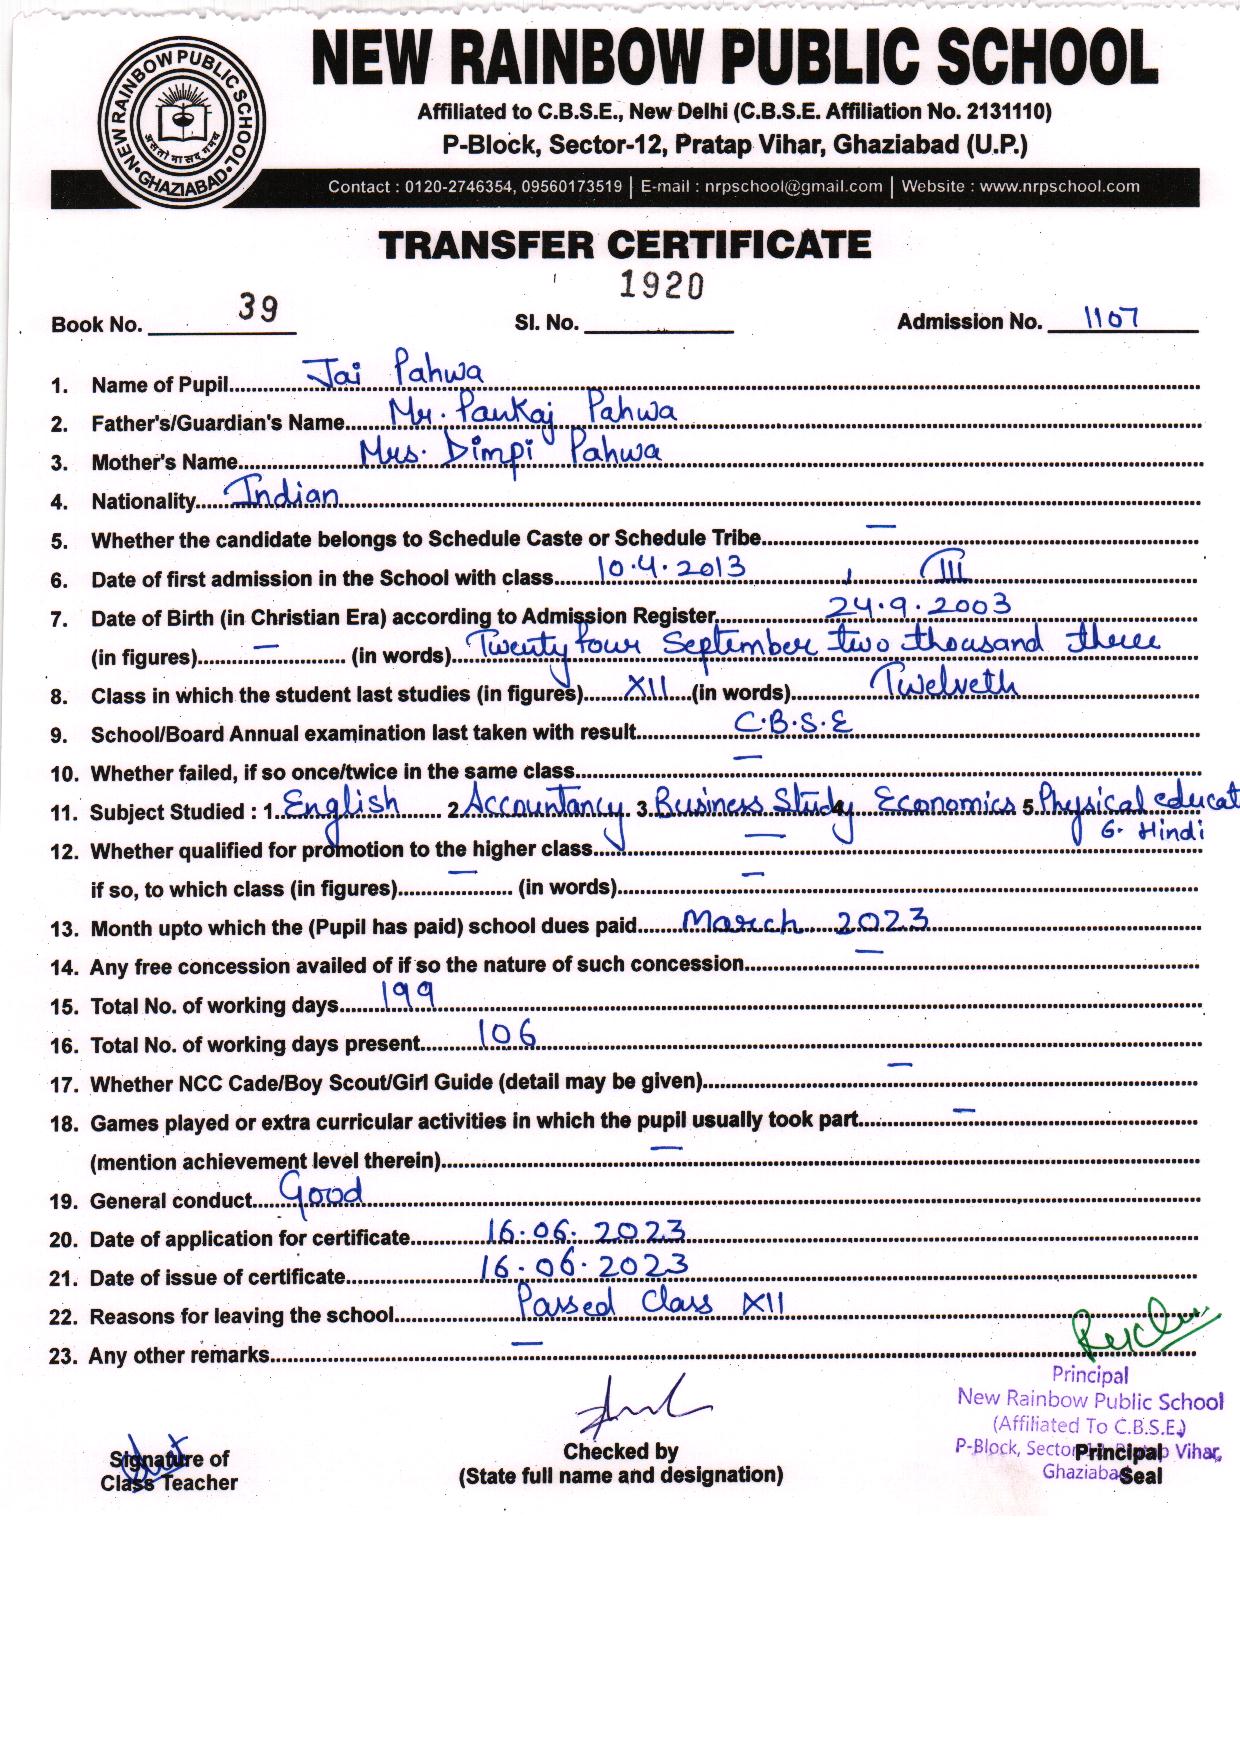 NEW RAINBOW PUBLIC SCHOOL
NEW RAINBOW PUBLIC SCHOOL
GHAZIABAD
असतो मा सद् गमय
Affiliated to C.B.S.E., New Delhi (C.B.S.E. Affiliation No. 2131110)
P-Block, Sector-12, Pratap Vihar, Ghaziabad (U.P.)
Contact : 0120-2746354, 09560173519 | E-mail : nrpschool@gmail.com | Website : www.nrpschool.com
TRANSFER CERTIFICATE
Book No. 39 Sl. No. 1920 Admission No. 1107
1. Name of Pupil Jai Pahwa
2. Father's/Guardian's Name Mr. Pankaj Pahwa
3. Mother's Name Mrs. Dimpi Pahwa
4. Nationality Indian
5. Whether the candidate belongs to Schedule Caste or Schedule Tribe —
6. Date of first admission in the School with class 10.4.2013, III
7. Date of Birth (in Christian Era) according to Admission Register 24.9.2003
(in figures) — (in words) Twenty four September two thousand three
8. Class in which the student last studies (in figures) XII (in words) Twelveth
9. School/Board Annual examination last taken with result C.B.S.E
10. Whether failed, if so once/twice in the same class —
11. Subject Studied : 1. English 2. Accountancy 3. Business Study 4. Economics 5. Physical educat
6. Hindi
12. Whether qualified for promotion to the higher class —
if so, to which class (in figures) — (in words) —
13. Month upto which the (Pupil has paid) school dues paid March 2023
14. Any free concession availed of if so the nature of such concession —
15. Total No. of working days 199
16. Total No. of working days present 106
17. Whether NCC Cade/Boy Scout/Girl Guide (detail may be given) —
18. Games played or extra curricular activities in which the pupil usually took part —
(mention achievement level therein) —
19. General conduct Good
20. Date of application for certificate 16.06.2023
21. Date of issue of certificate 16.06.2023
22. Reasons for leaving the school Passed Class XII
23. Any other remarks —
Principal
New Rainbow Public School
(Affiliated To C.B.S.E.)
P-Block, Sector Vihar,
Ghaziabad
Signature of
Class Teacher
Checked by
(State full name and designation)
Principal
Seal